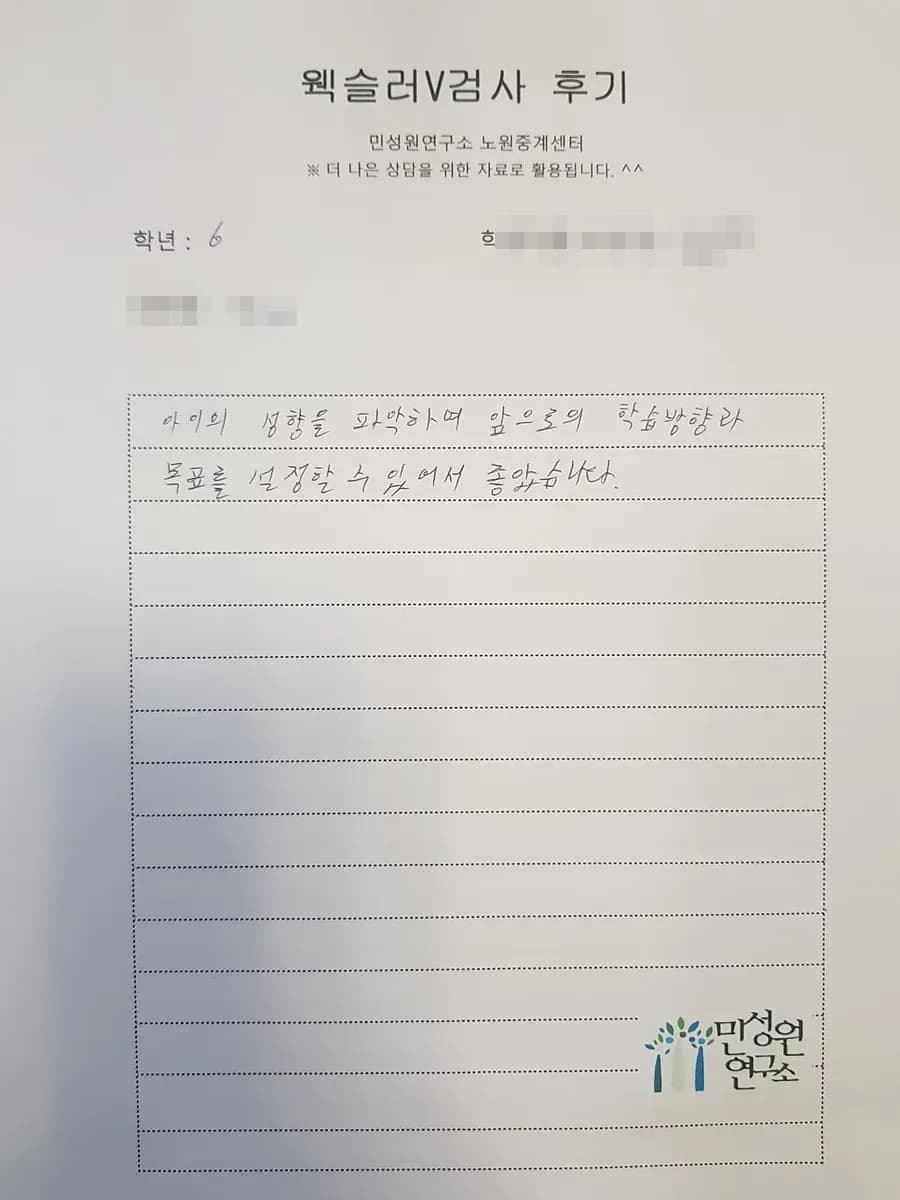 웩슬러V검사 후기
민성원연구소 노원중계센터
※ 더 나은 상담을 위한 자료로 활용됩니다. ^^
학년 : 6
아이의 성향을 파악하며 앞으로의 학습방향과
목표를 설정할 수 있어서 좋았습니다.
민성원
연구소